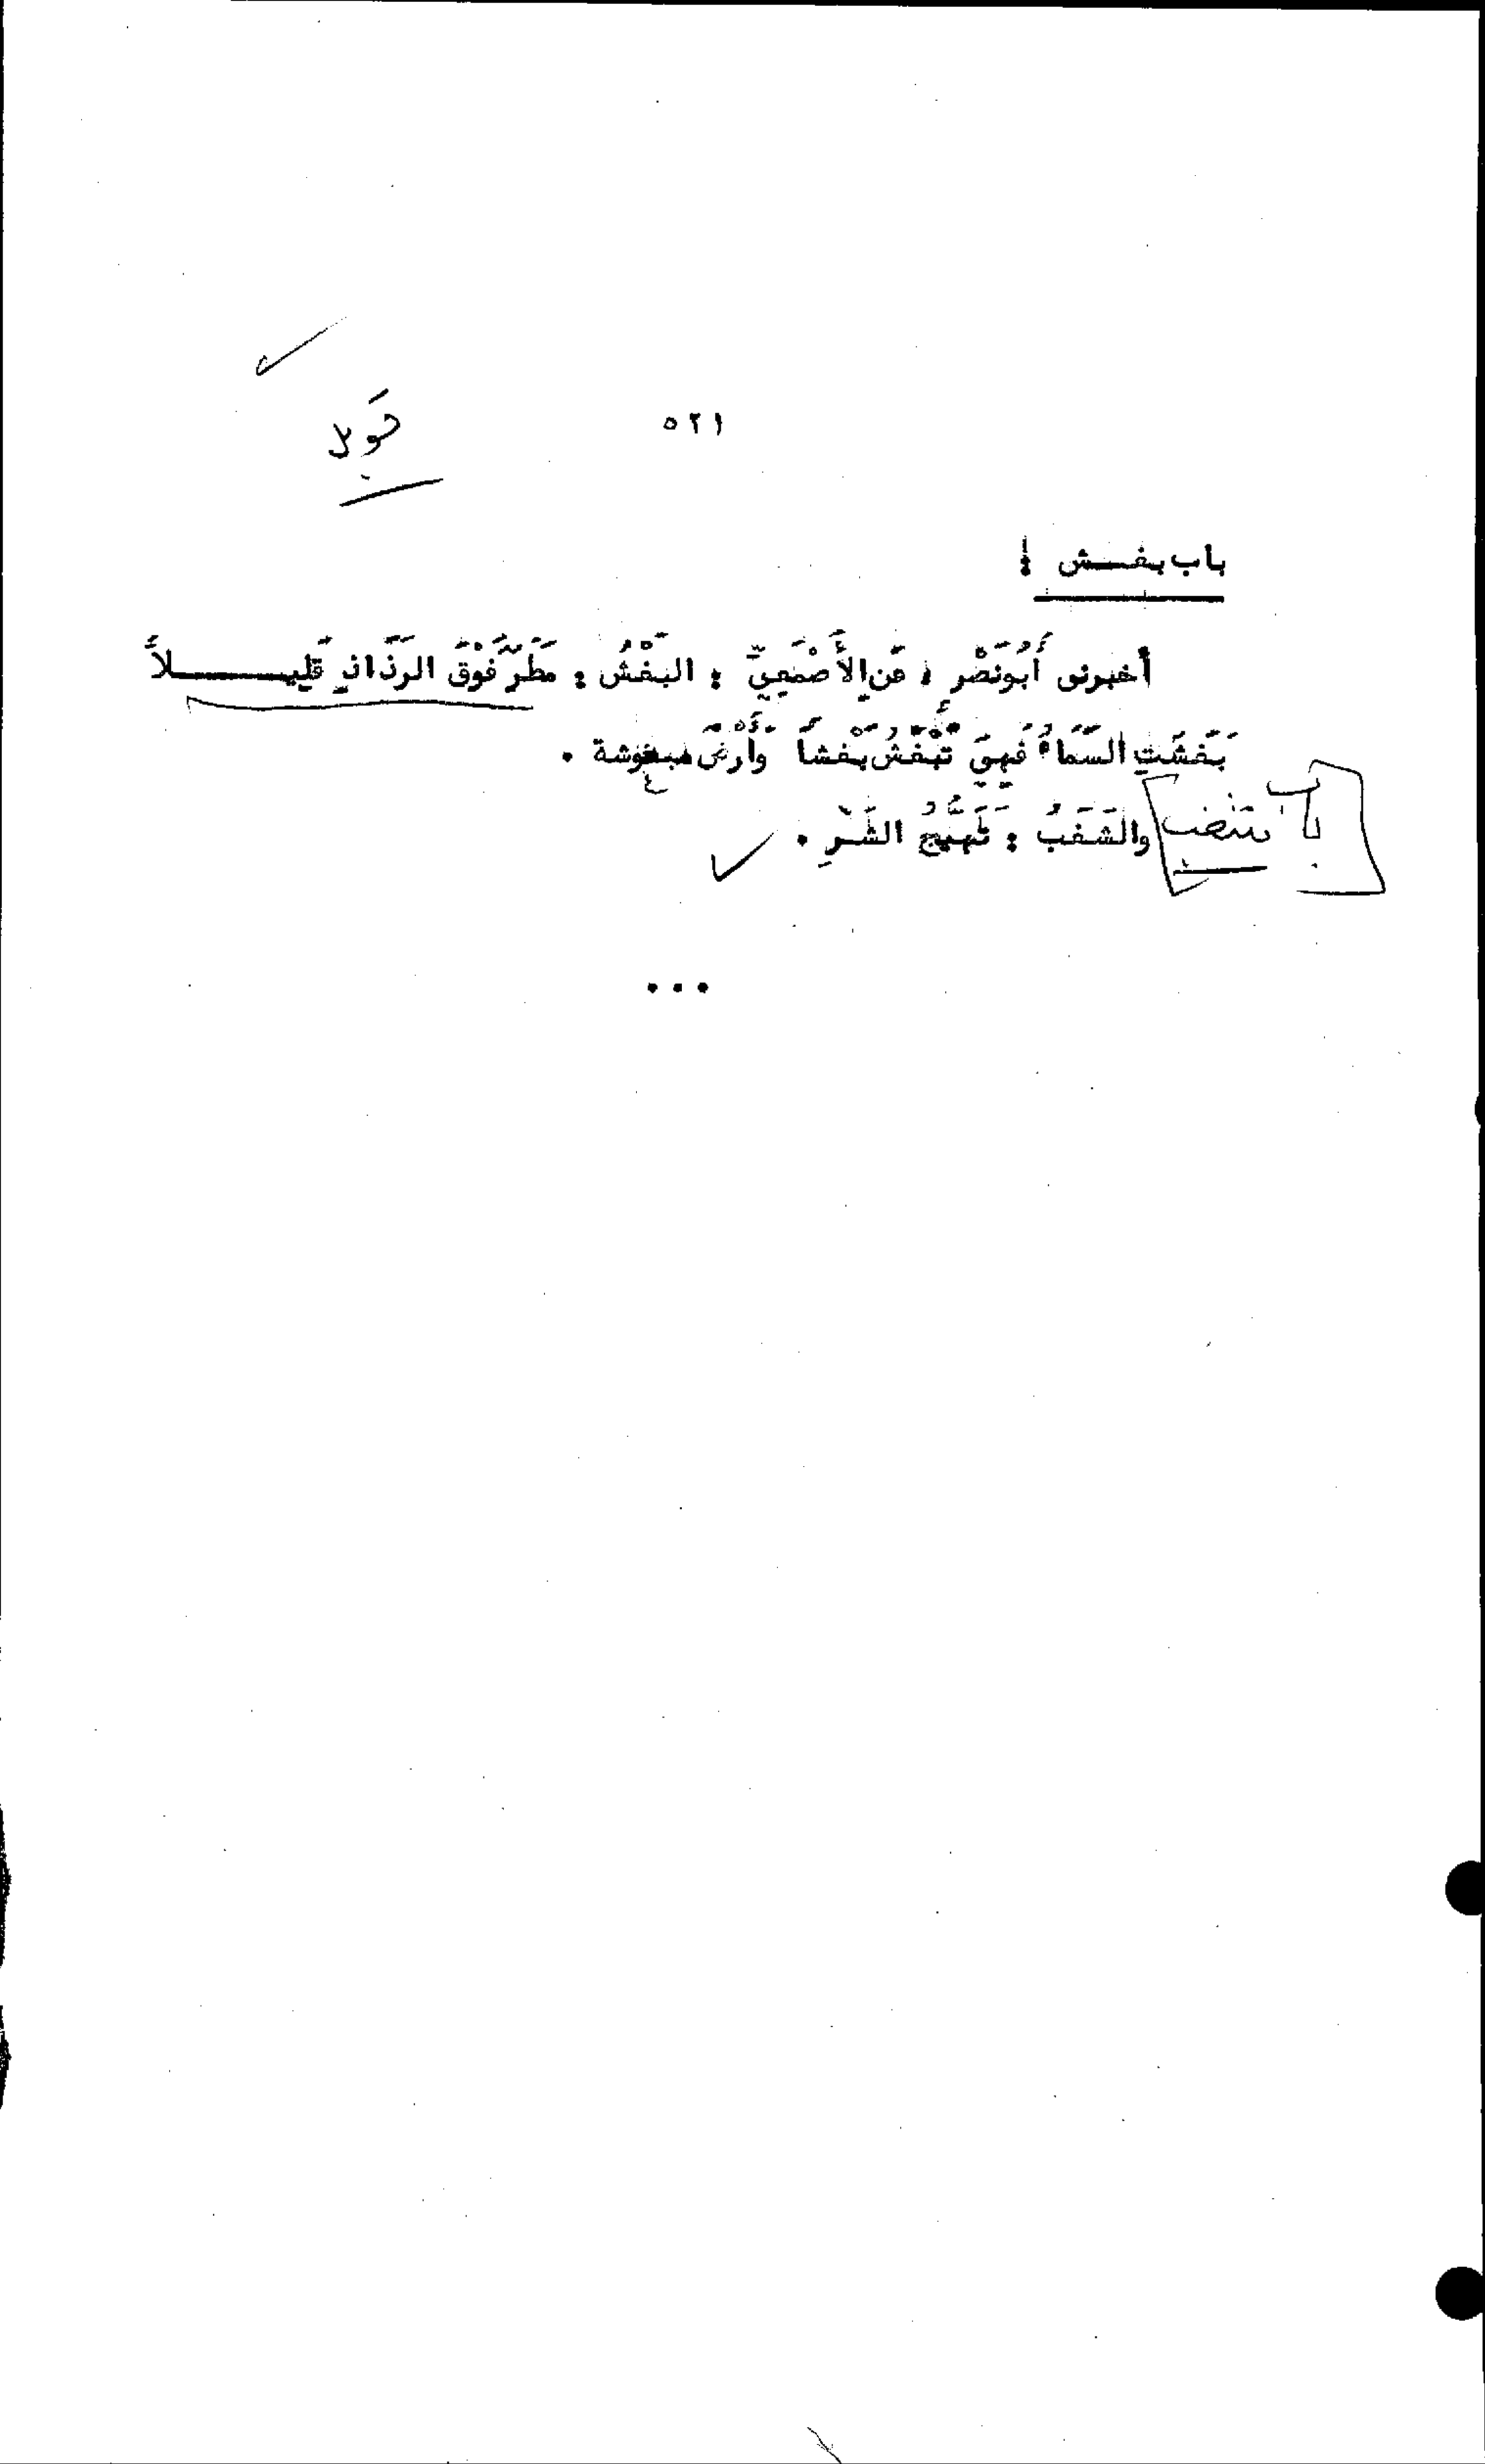 ٥٢١
باب بغش :
أخبرنى أَبُونَصْرٍ ، عَنِ الأَصْمَعِيِّ : البَغْشُ : مَطَرٌ فَوْقَ الرَذَاذِ قَلِيلاً
بَغَشَتِ السَّمَاءُ فَهِيَ تَبْغَشُ بَغْشاً وَأَرْضٌ مبغوشة .
باب شغب والشَغَبُ : تَهَيُّجُ الشَّرِّ .
...